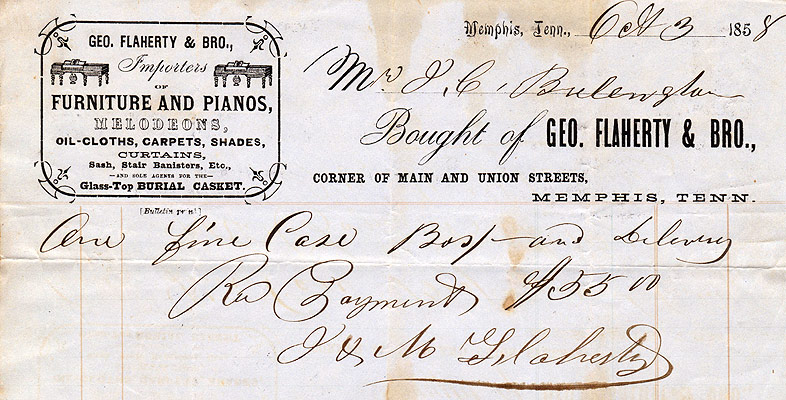 GEO. FLAHERTY & BRO.,
Importers
OF
FURNITURE AND PIANOS,
MELODEONS,
OIL-CLOTHS, CARPETS, SHADES,
CURTAINS,
Sash, Stair Banisters, Etc.,
—AND SOLE AGENTS FOR THE—
Glass-Top BURIAL CASKET.
[Bulletin print]
Memphis, Tenn., Oct 3 1858
Mr J. C.
Bought of GEO. FLAHERTY & BRO.,
CORNER OF MAIN AND UNION STREETS,
MEMPHIS, TENN.
One fine Case Box and Delivery
Payment $55 00
& M Flaherty